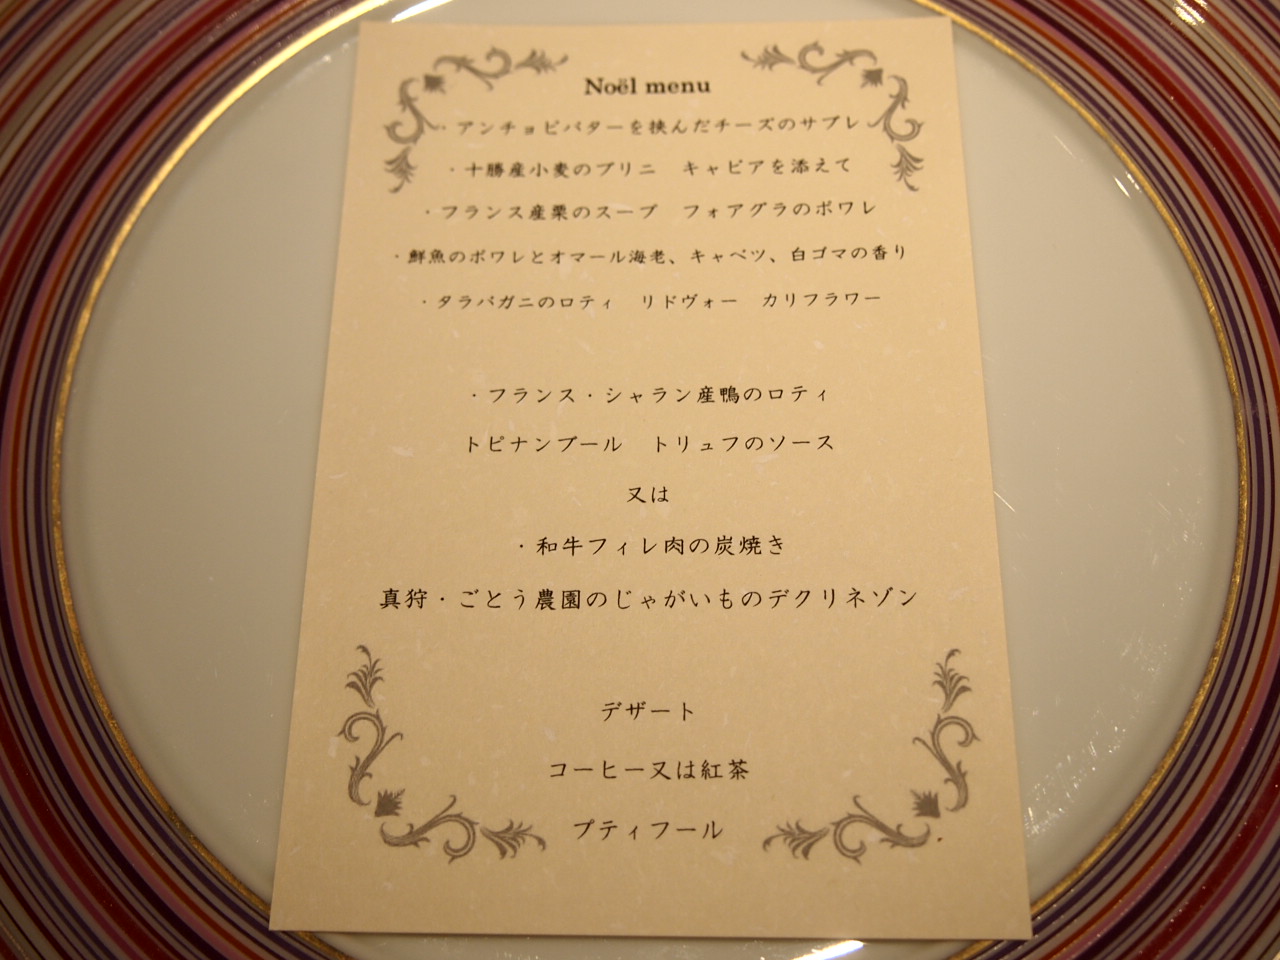 Noël menu
・アンチョビバターを挟んだチーズのサブレ
・十勝産小麦のブリニ　キャビアを添えて
・フランス産栗のスープ　フォアグラのポワレ
・鮮魚のポワレとオマール海老、キャベツ、白ゴマの香り
・タラバガニのロティ　リドヴォー　カリフラワー
・フランス・シャラン産鴨のロティ
トピナンブール　トリュフのソース
又は
・和牛フィレ肉の炭焼き
真狩・ごとう農園のじゃがいものデクリネゾン
デザート
コーヒー又は紅茶
プティフール